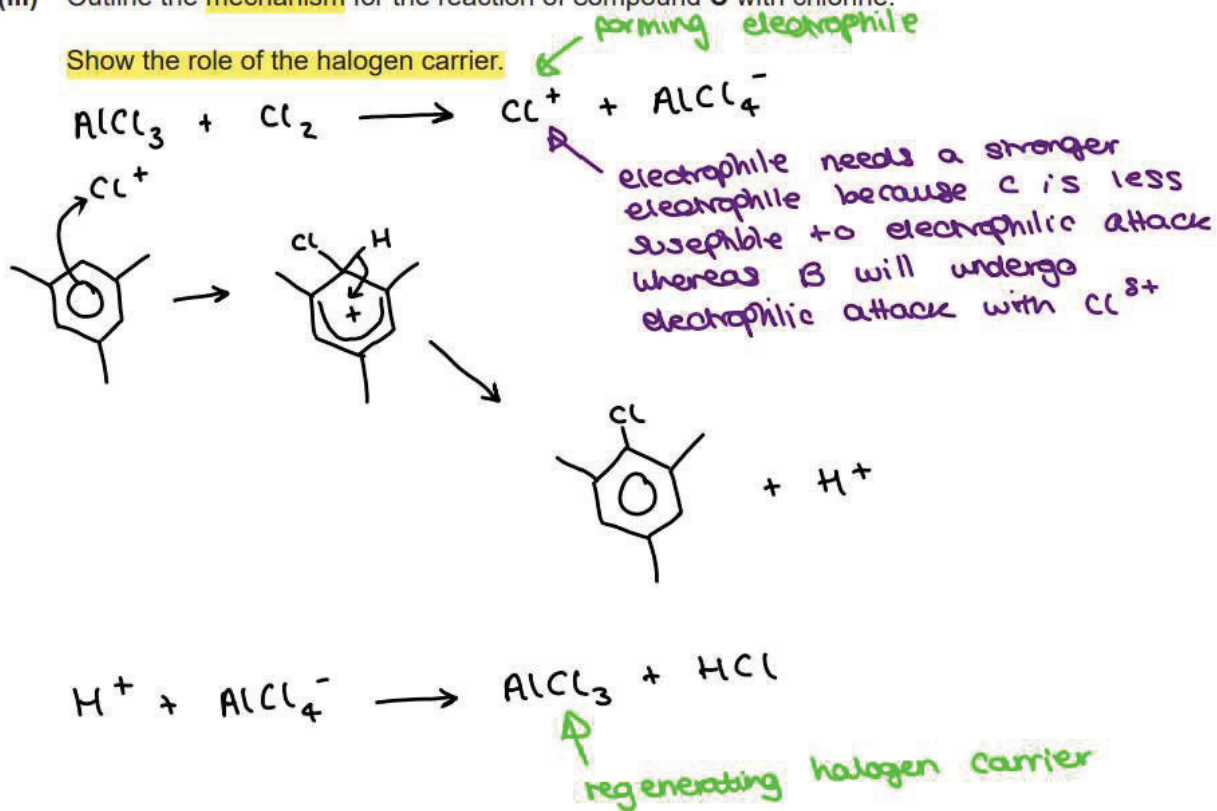 (iii) Outline the mechanism for the reaction of compound C with chlorine.
forming electrophile
Show the role of the halogen carrier.
AlCl₃ + Cl₂ ⟶ Cl⁺ + AlCl₄⁻
electrophile needs a stronger
electrophile because C is less
susephble to electrophilic attack
whereas B will undergo
electrophilic attack with Cl^δ+
Cl⁺
Cl H
+
Cl
+ H⁺
H⁺ + AlCl₄⁻ ⟶ AlCl₃ + HCl
regenerating halogen carrier